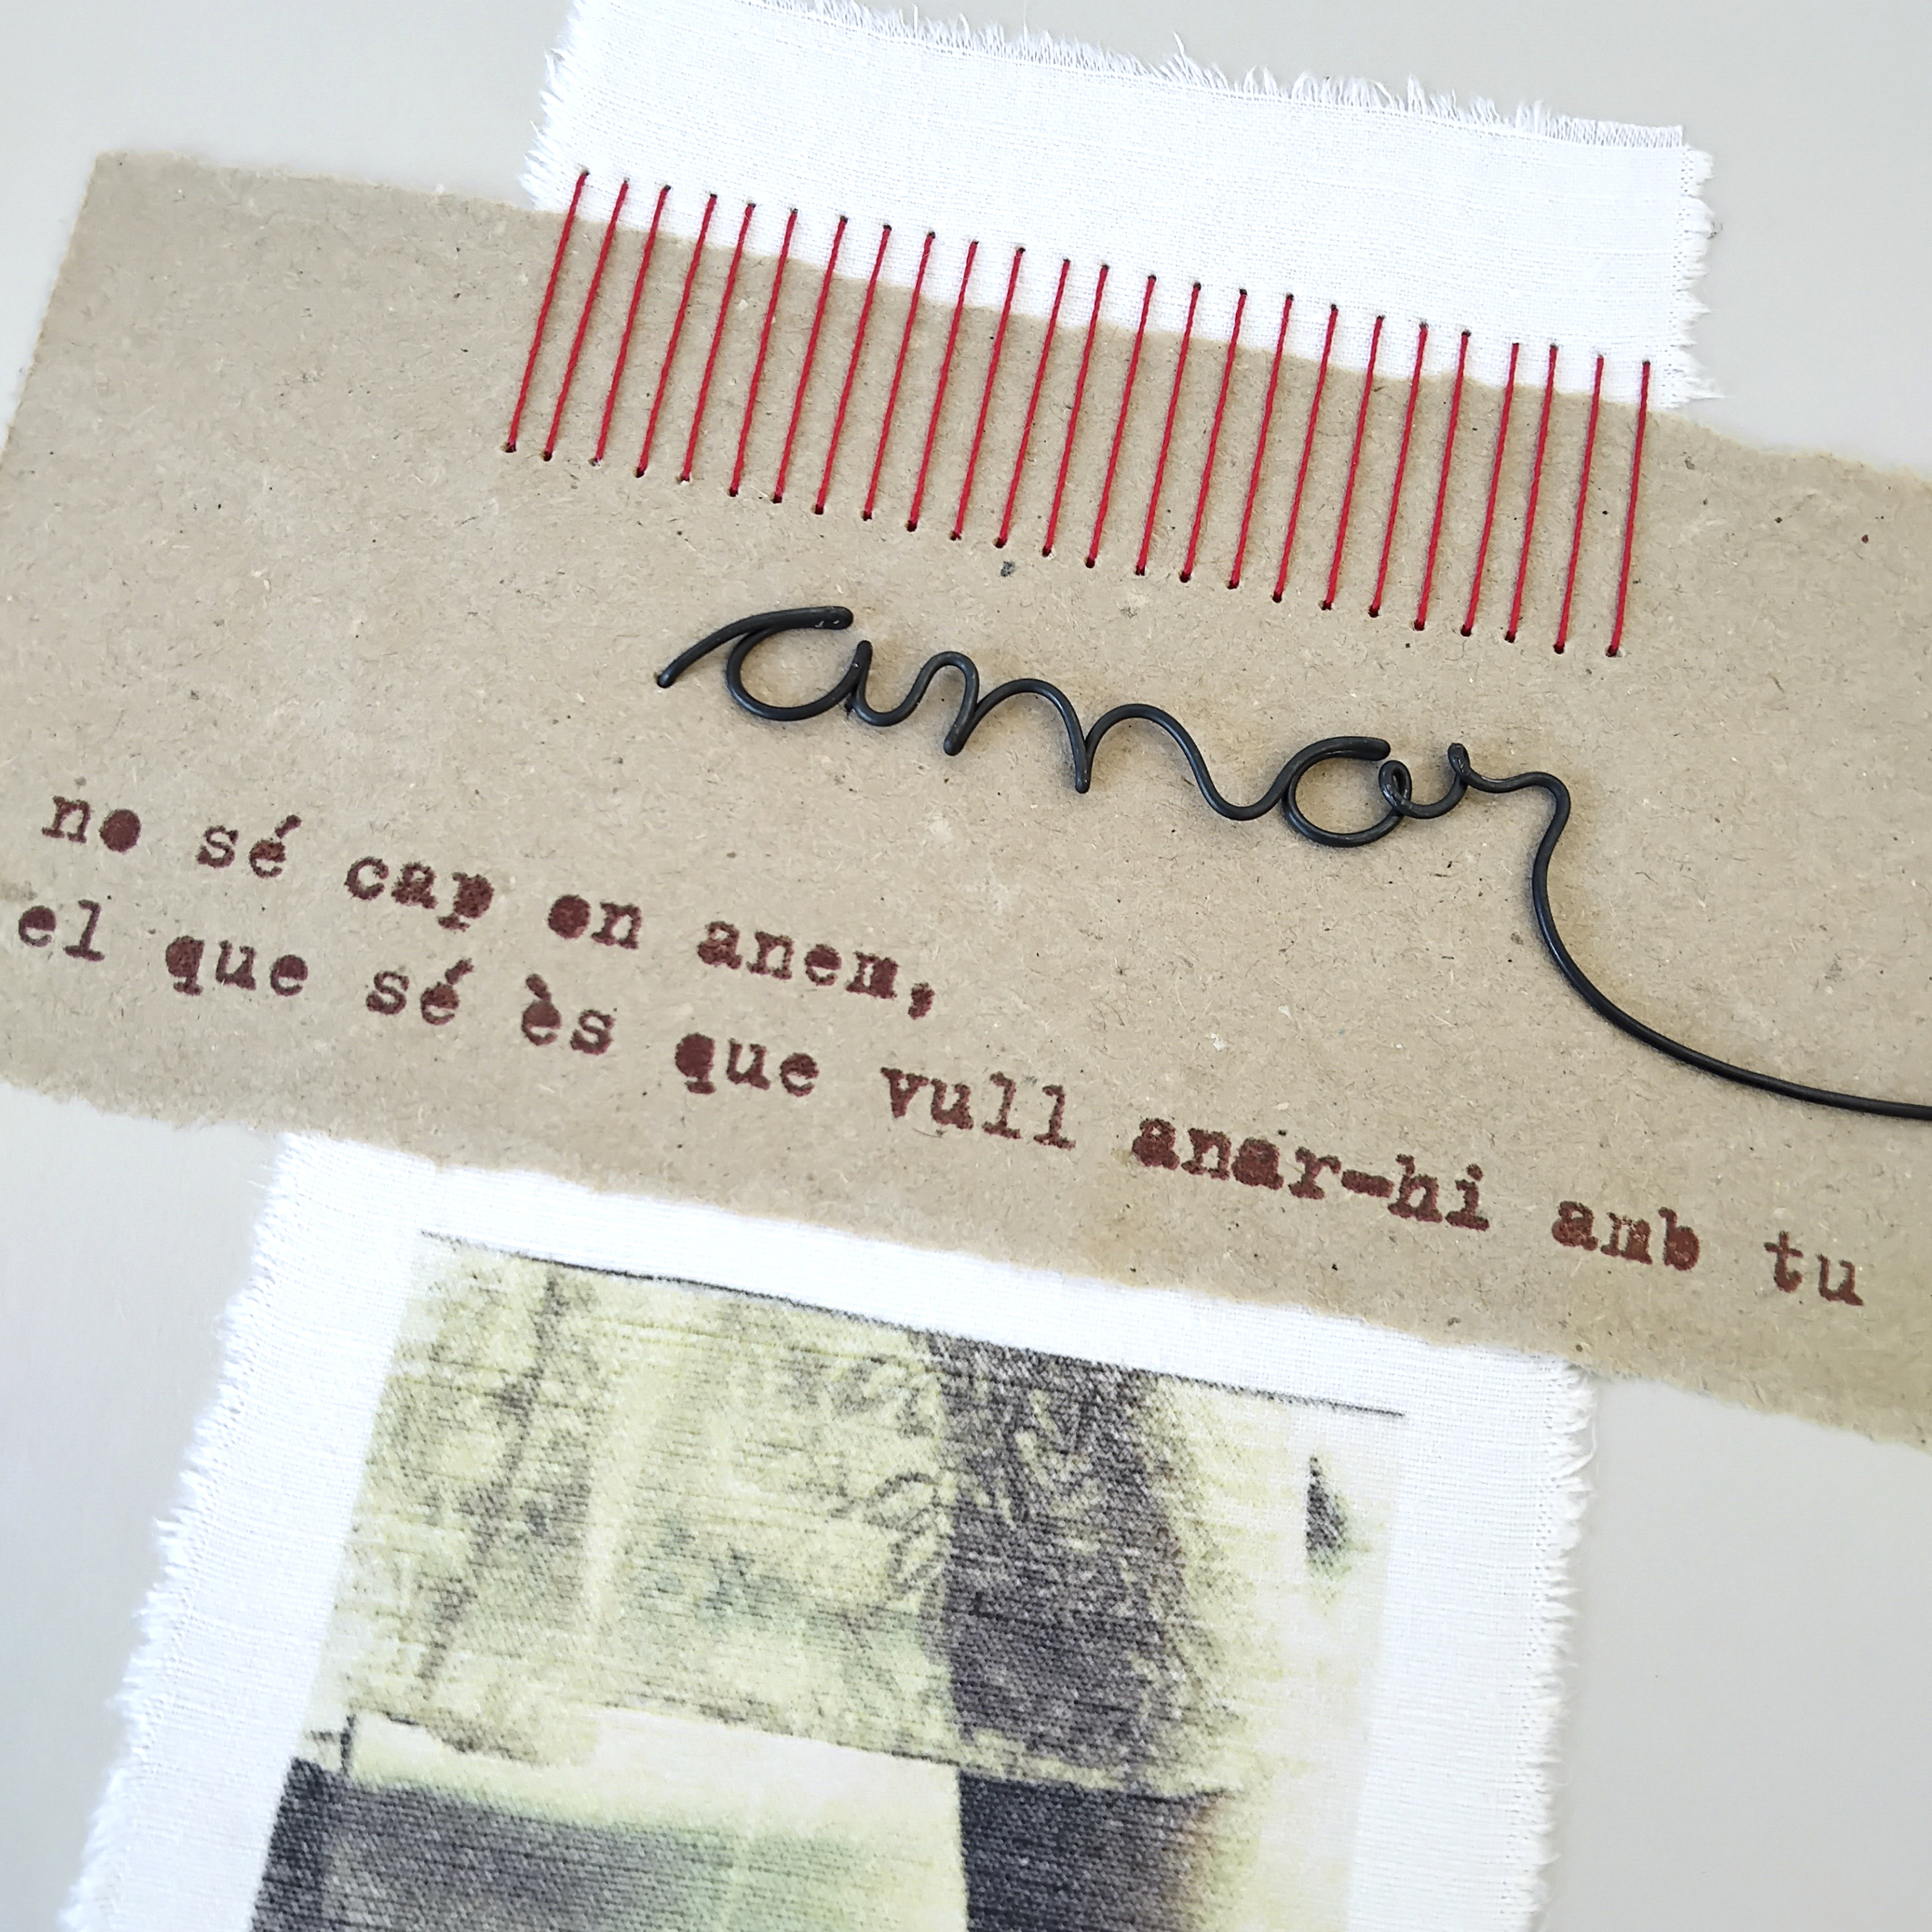 amor
no sé cap on anem,
el que sé ès que vull anar-hi amb tu